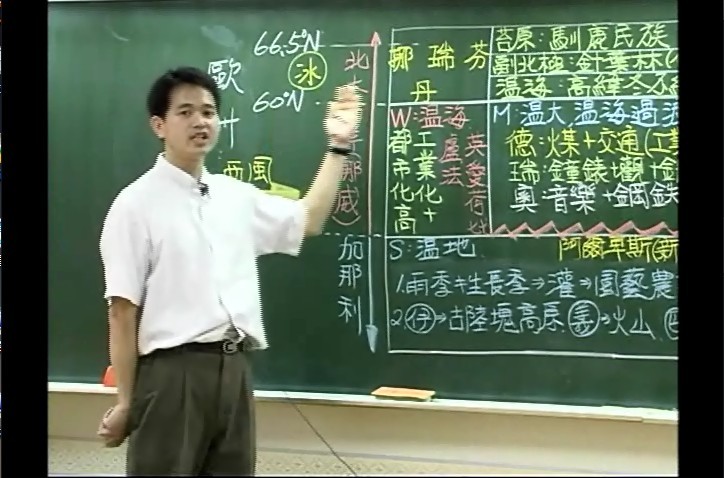 66.5°N
冰
60°N
歐
西風
北
(挪威)
加那利
挪瑞芬
丹
苔原:馴鹿民族
副北極:針葉林(
温海:高緯冬不
W:温海
都市化高
工業化+
英愛荷
盧法
M:温大,温海過
德:煤+交通(工
瑞:鐘錶.觀+金
奧:音樂+鋼鉄
S:温地
阿爾卑斯(新
1.雨季≠生長季→灌→園藝農
2.伊→古陸塊高原 義→火山